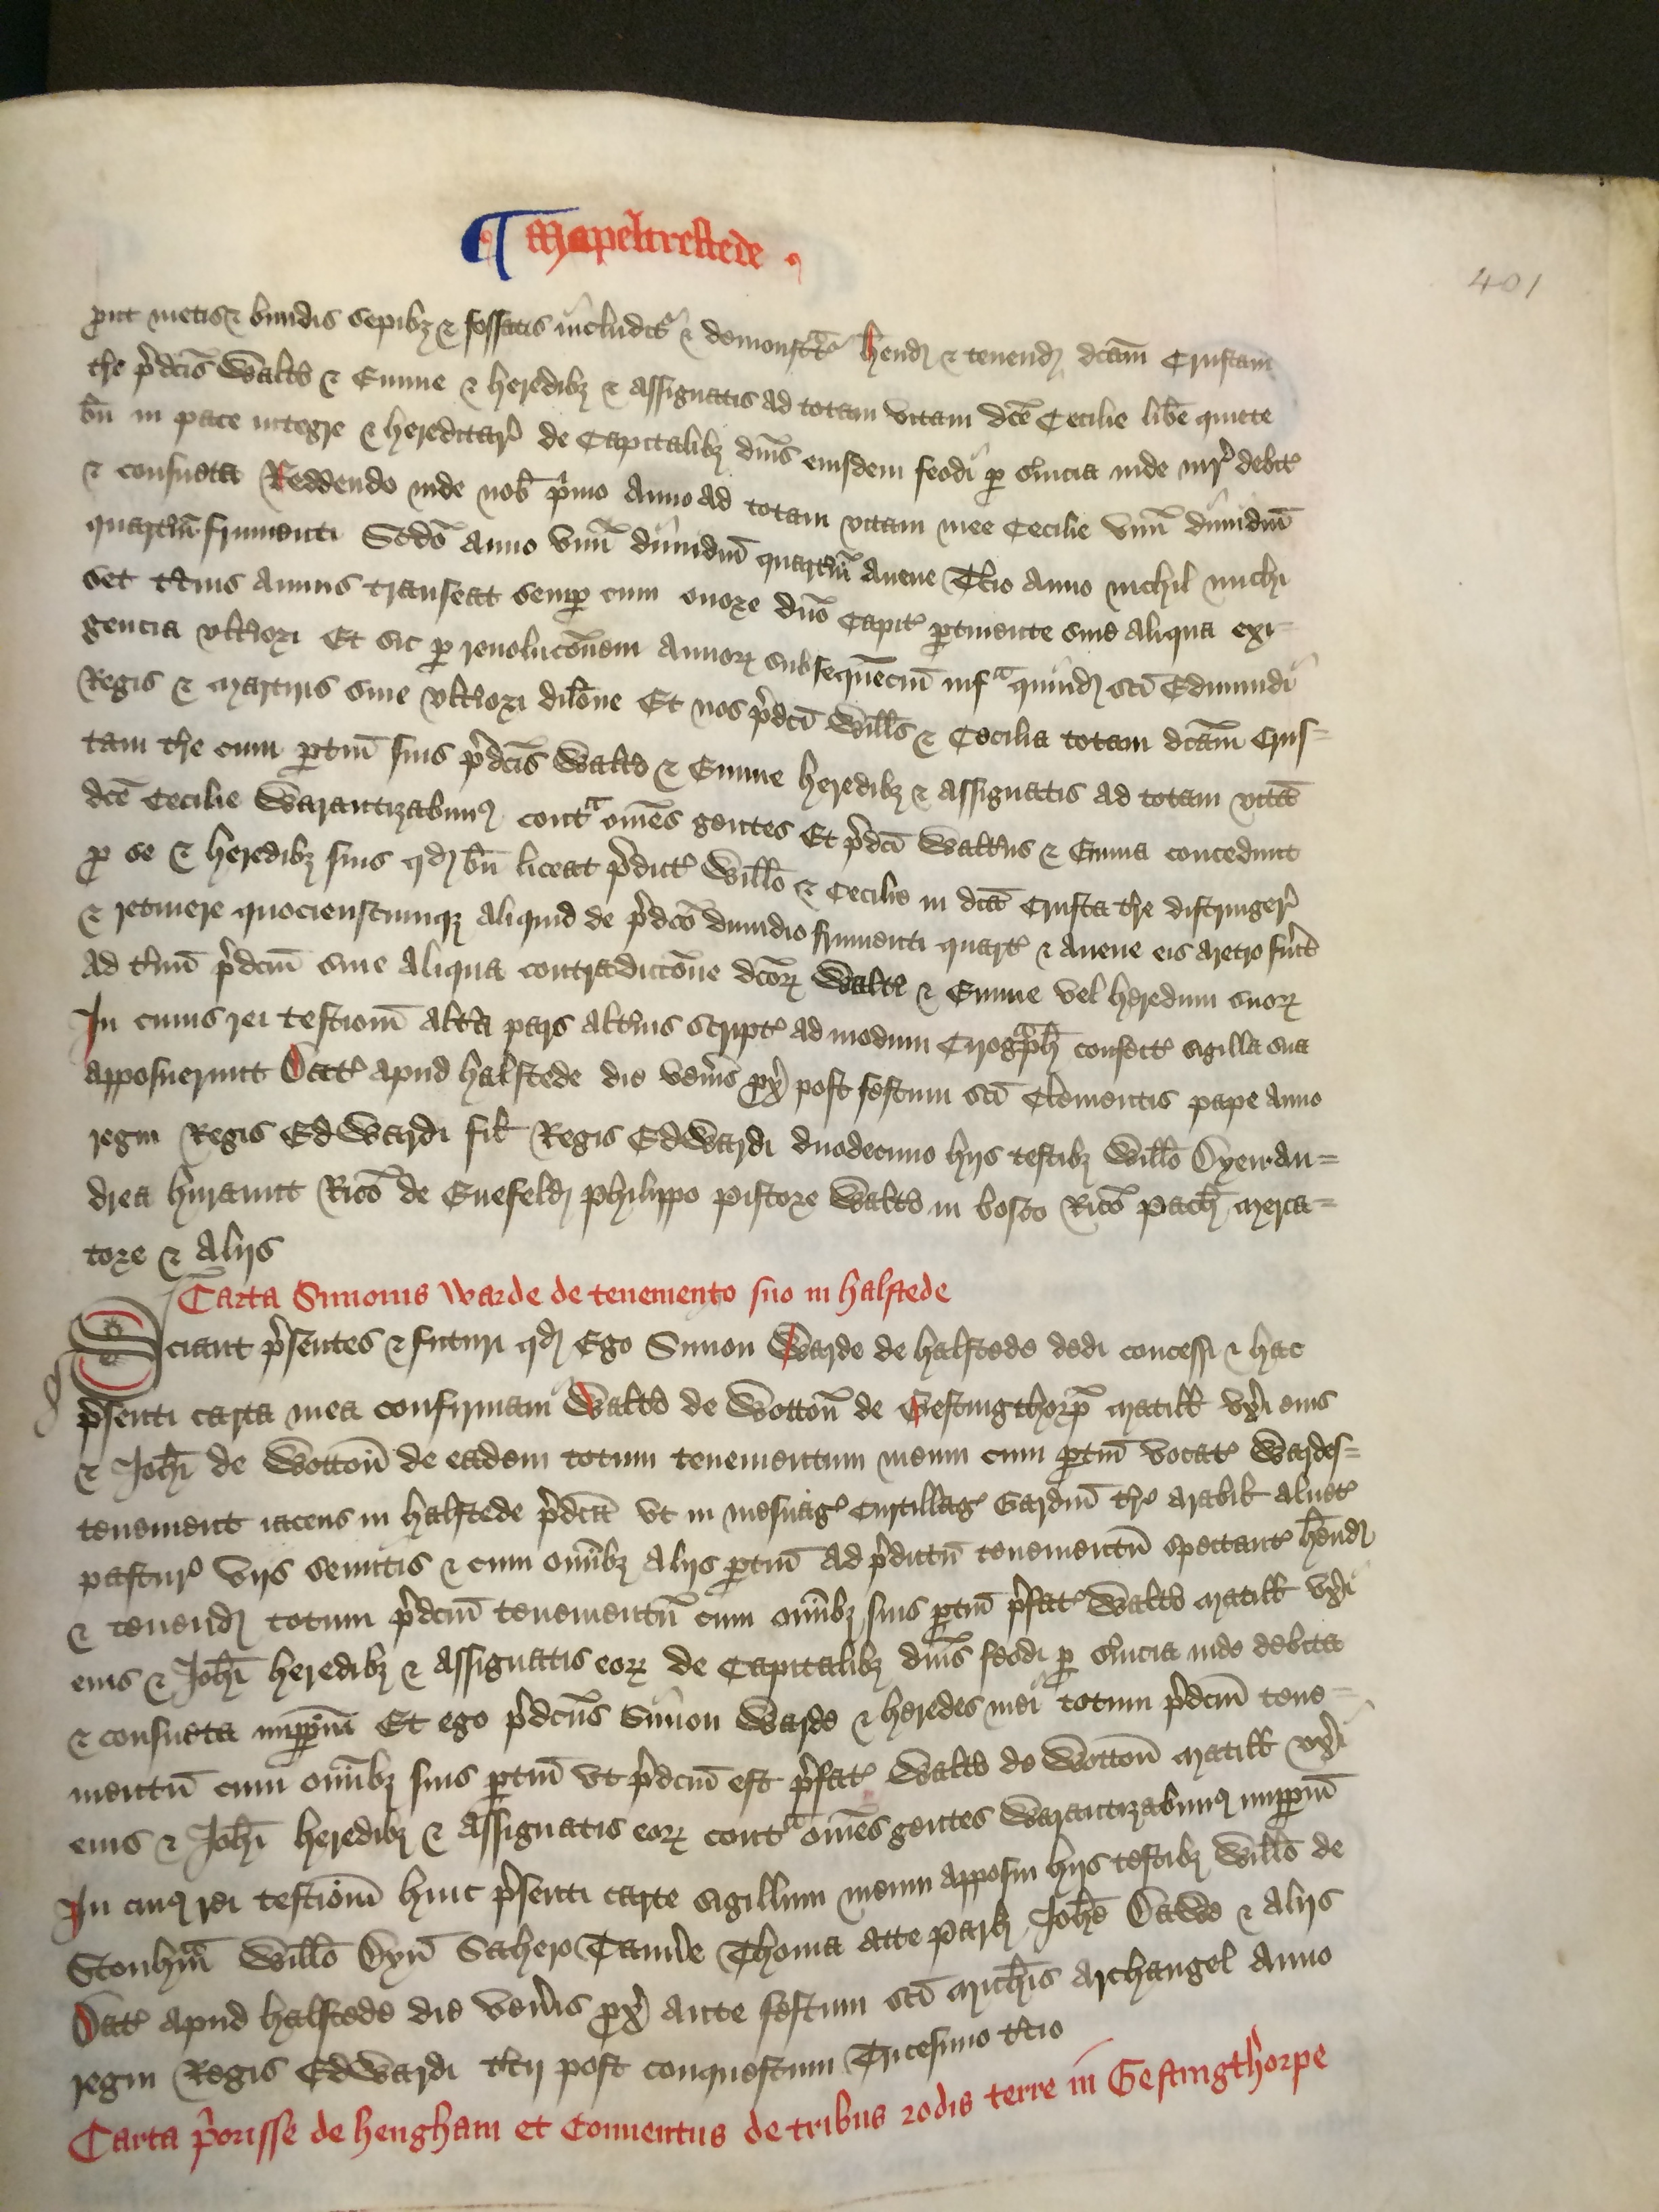 ¶ Mapeltrestede
401
put metis & bundis sepibȝ & fossatis includit᷑ & demonstrat᷑ hend & tenend dcam Crustam
tre p̄dcis Walto & Emme & heredibȝ & assignatis ad totam vitam dce Cecilie libe quiete
bn in pace integre & hereditar de Capitalibȝ dnis eiusdem feodi p seruicia inde nr debit
& consueta Reddendo inde nob pimo Anno ad totam vitam mee Cecilie vnu dimidiu
quarteriu frumenti Scdo Anno vnu dimidiu quarteriu Auene Tercio Anno nichil michi
set tercius annus transeat semp cum onore dno Capit ptinente sine aliqua exi-
gencia vlteriori Et sic p reuolucionem Annoꝝ subsequenciu infra quind sci Edmundi
Regis & martiris sine vlteriori dilone Et nos p̄dci Willus & Cecilia totam dcam Crus-
tam tre cum ptin suis p̄dcis Walto & Emme heredibȝ & assignatis ad totam vita
dce Cecilie Warantizabimꝰ contra omes gentes Et p̄dci Walterus & Emma concedunt
p se & heredibȝ suis qd bn liceat p̄dict Willo & Cecilie in dca Crusta tre distringere
& retinere quocienscumqȝ aliquid de p̄dco dimidio frumenti quart & auene eis aretro fuerit
ad tminu p̄dcm sine aliqua contradiccone dcoꝝ Walti & Emme vel heredum suoꝝ
In cuius rei testioniu altera pars alterius script ad modum Cirograph confect sigilla sua
apposuerunt Dat apud halstede die veneris px post festum sci Clementis pape anno
regni Regis Edwardi fil Regis Edwardi duodecimo hijs testibȝ Willo Dyer an=
drea hirant Rico de Enefeld philippo pistore Walto in bosco Rico pach merca=
tore & alijs
Carta Simonis Warde de tenemento suo in halstede
Sciant p̄sentes & futuri qd Ego Simon Warde de halstede dedi concessi & hac
p̄senti carta mea confirmaui Walto de Wotton de Gestingthorp Matill vxi eius
& Johi de Wotton de eadem totum tenementum meum cum ptin vocat Wardes=
tenement iacens in halstede p̄dca vt in mesuag Curtillag Gardin tre arabil alnet
pastur vijs semitis & cum omnibȝ alijs ptin ad p̄dictu tenementu spectant hend
& tenend totum p̄dcm tenementu cum omnibȝ suis ptin p̄fat Walto Matill vxi
eius & Johi heredibȝ & assignatis eoꝝ de Capitalibȝ dnis feodi p seruicia inde debita
& consueta imppm Et ego p̄dcus Simon Warde & heredes mei totum p̄dcm tene=
mentu cum omnibȝ suis ptin vt p̄dcm est p̄fat Walto de Wotton Matill vxi
eius & Johi heredibȝ & assignatis eoꝝ contra omes gentes Warantizabimꝰ imppm
In cuiꝰ rei testioniu huic p̄senti carte sigillum meum apposui hijs testibȝ Willo de
Stonhm Willo Dyn Sahero Thoma atte park Johe Dawe & alijs
Dat apud halstede die veneris px ante festum sci Michis archangel Anno
regni Regis Edwardi tercij post conquestum Tricesimo tercio
Carta p̄orisse de hengham et Conuentus de tribus rodis terre in Gestingthorpe